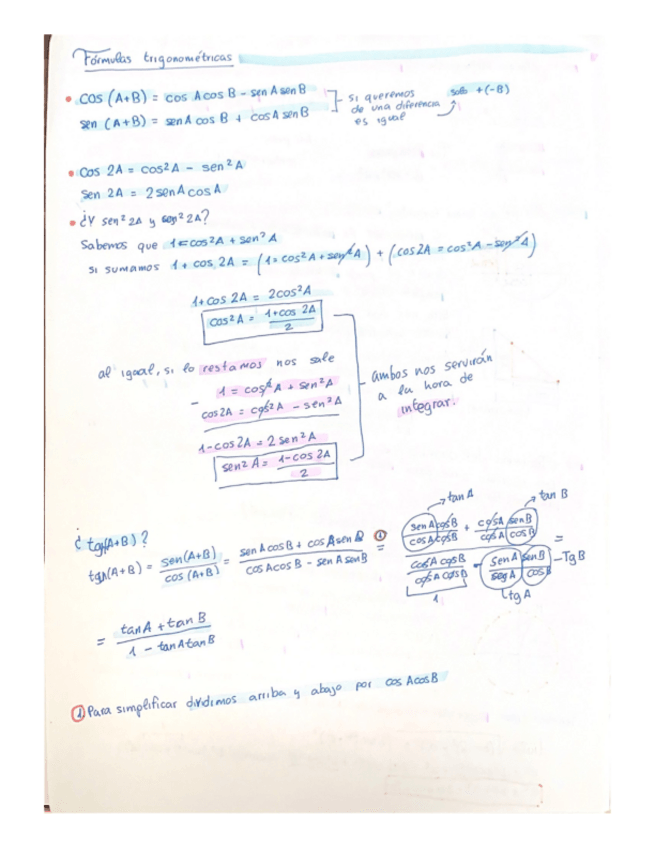 Fórmulas trigonométricas
• cos (A+B) = cos A cos B - sen A sen B
sen (A+B) = sen A cos B + cos A sen B
si queremos
de una diferencia
es igual
solo +(-B)
• Cos 2A = cos²A - sen²A
Sen 2A = 2 sen A cos A
• ¿Y sen² 2A y cos² 2A?
Sabemos que 1 = cos²A + sen²A
si sumamos 1 + cos 2A = (1 = cos²A + sen²A) + (cos 2A = cos²A - sen²A)
1 + cos 2A = 2cos²A
cos²A = (1 + cos 2A)/2
al igual, si lo restamos nos sale
- 1 = cos²A + sen²A
cos 2A = cos²A - sen²A
1 - cos 2A = 2 sen²A
sen²A = (1 - cos 2A)/2
ambos nos servirán
a la hora de
integrar.
¿tg(A+B)?
tg(A+B) = sen(A+B)/cos(A+B) = (sen A cos B + cos A sen B)/(cos A cos B - sen A sen B) =① (sen A cos B/cos A cos B + cos A sen B/cos A cos B)/(cos A cos B/cos A cos B - sen A sen B/cos B) =
tan A
tan B
1
tg A
Tg B
= (tan A + tan B)/(1 - tan A tan B)
① Para simplificar dividimos arriba y abajo por cos A cos B